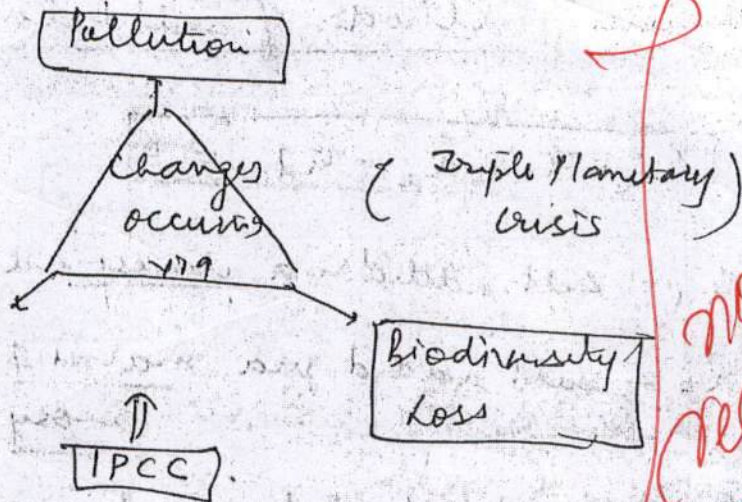 Pollution
Changes
occuring
( Triple Planetary
crisis )
Biodiversity
Loss
IPCC.